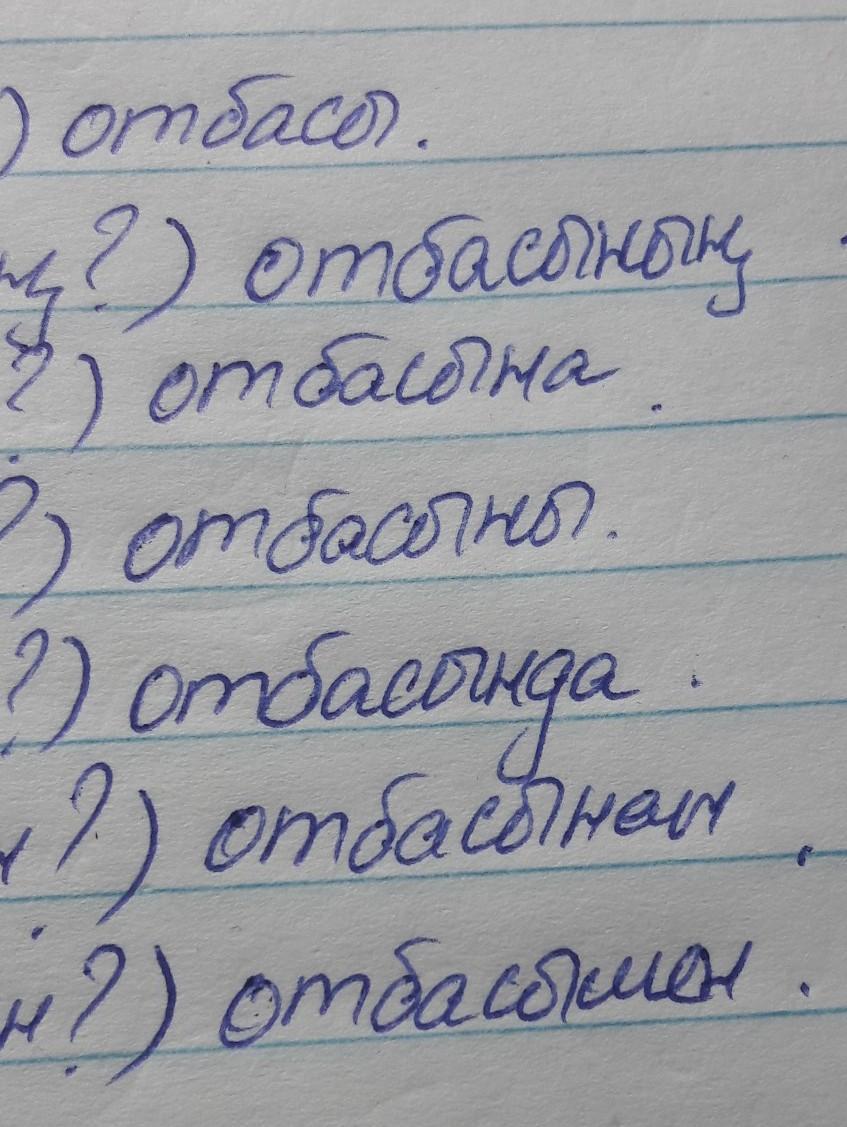 ) отбасы.
ң?) отбасының.
?) отбасына.
?) отбасыны.
?) отбасында.
н?) отбасынан.
н?) отбасымен.